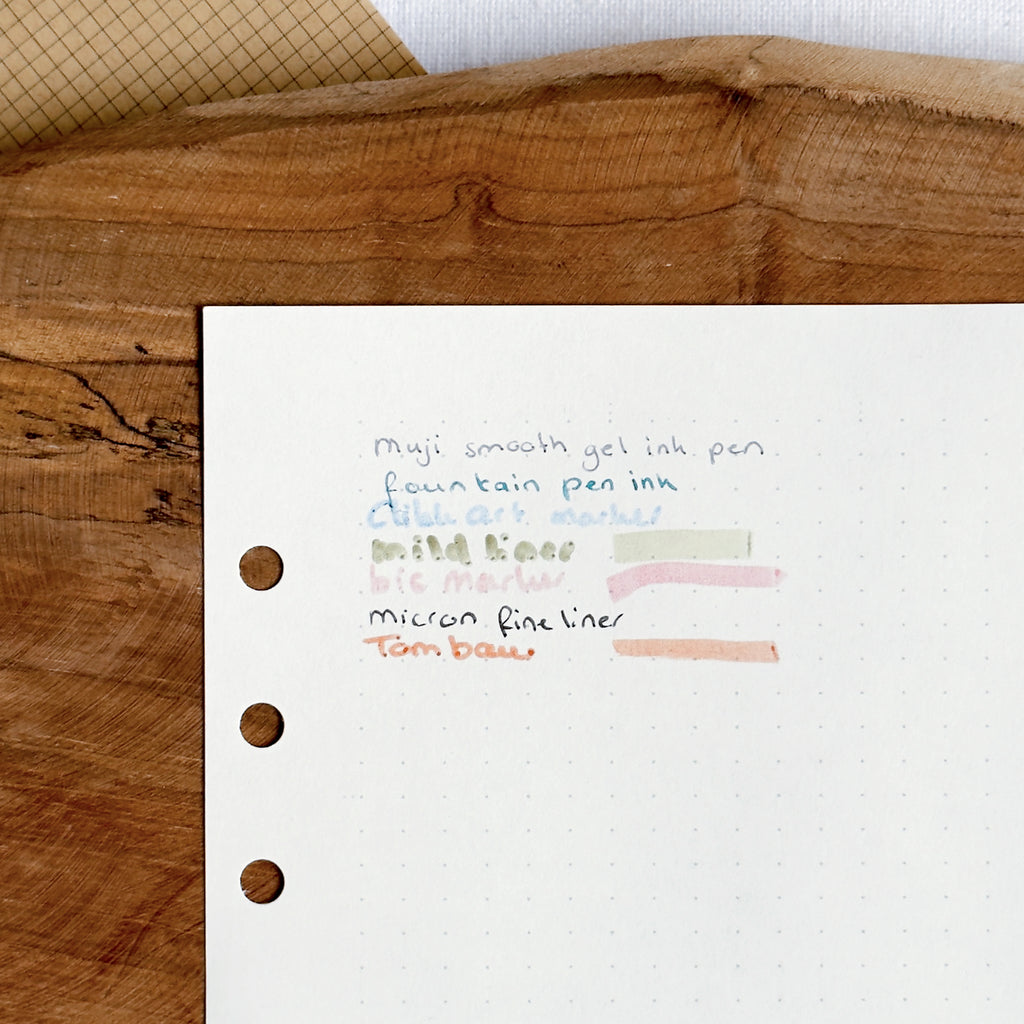 muji smooth gel ink pen
fountain pen ink
art marker
mild liner
bic marker
micron fine liner
Tombow